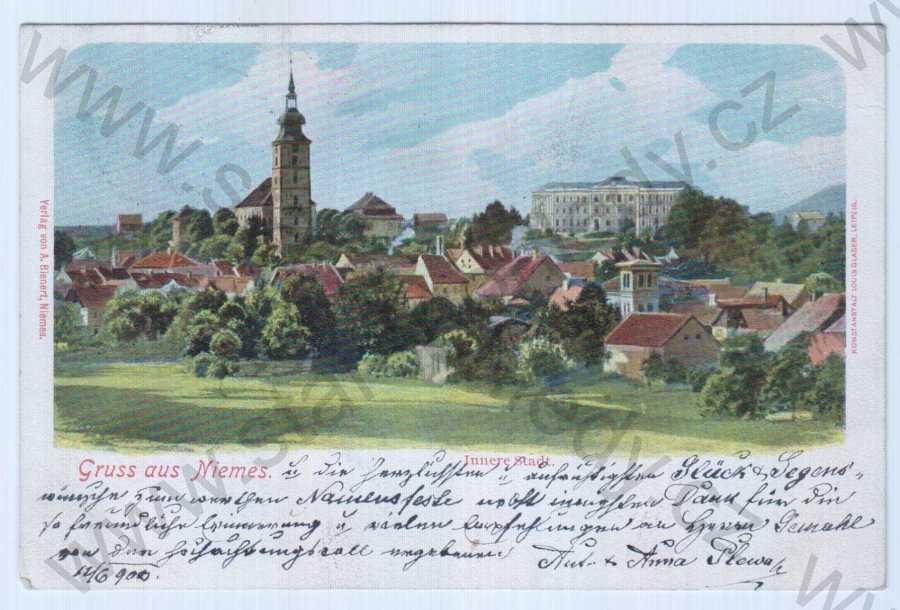 Verlag von A. Bienert, Niemes.
KUNSTANSTALT LOUIS GLASER, LEIPZIG.
Innere Stadt.
Gruss aus Niemes. u die herzlichsten u aufrichtigsten Glück & Segens-
wünsche zum werthen Namensfeste nebst innigsten Dank für die
so freundliche Erinnerung u vielen Empfehlungen an Herrn Gemahl
von den hochachtungsvoll ergebenen Ant. & Anna
12/6 900.
www.staré ... .cz